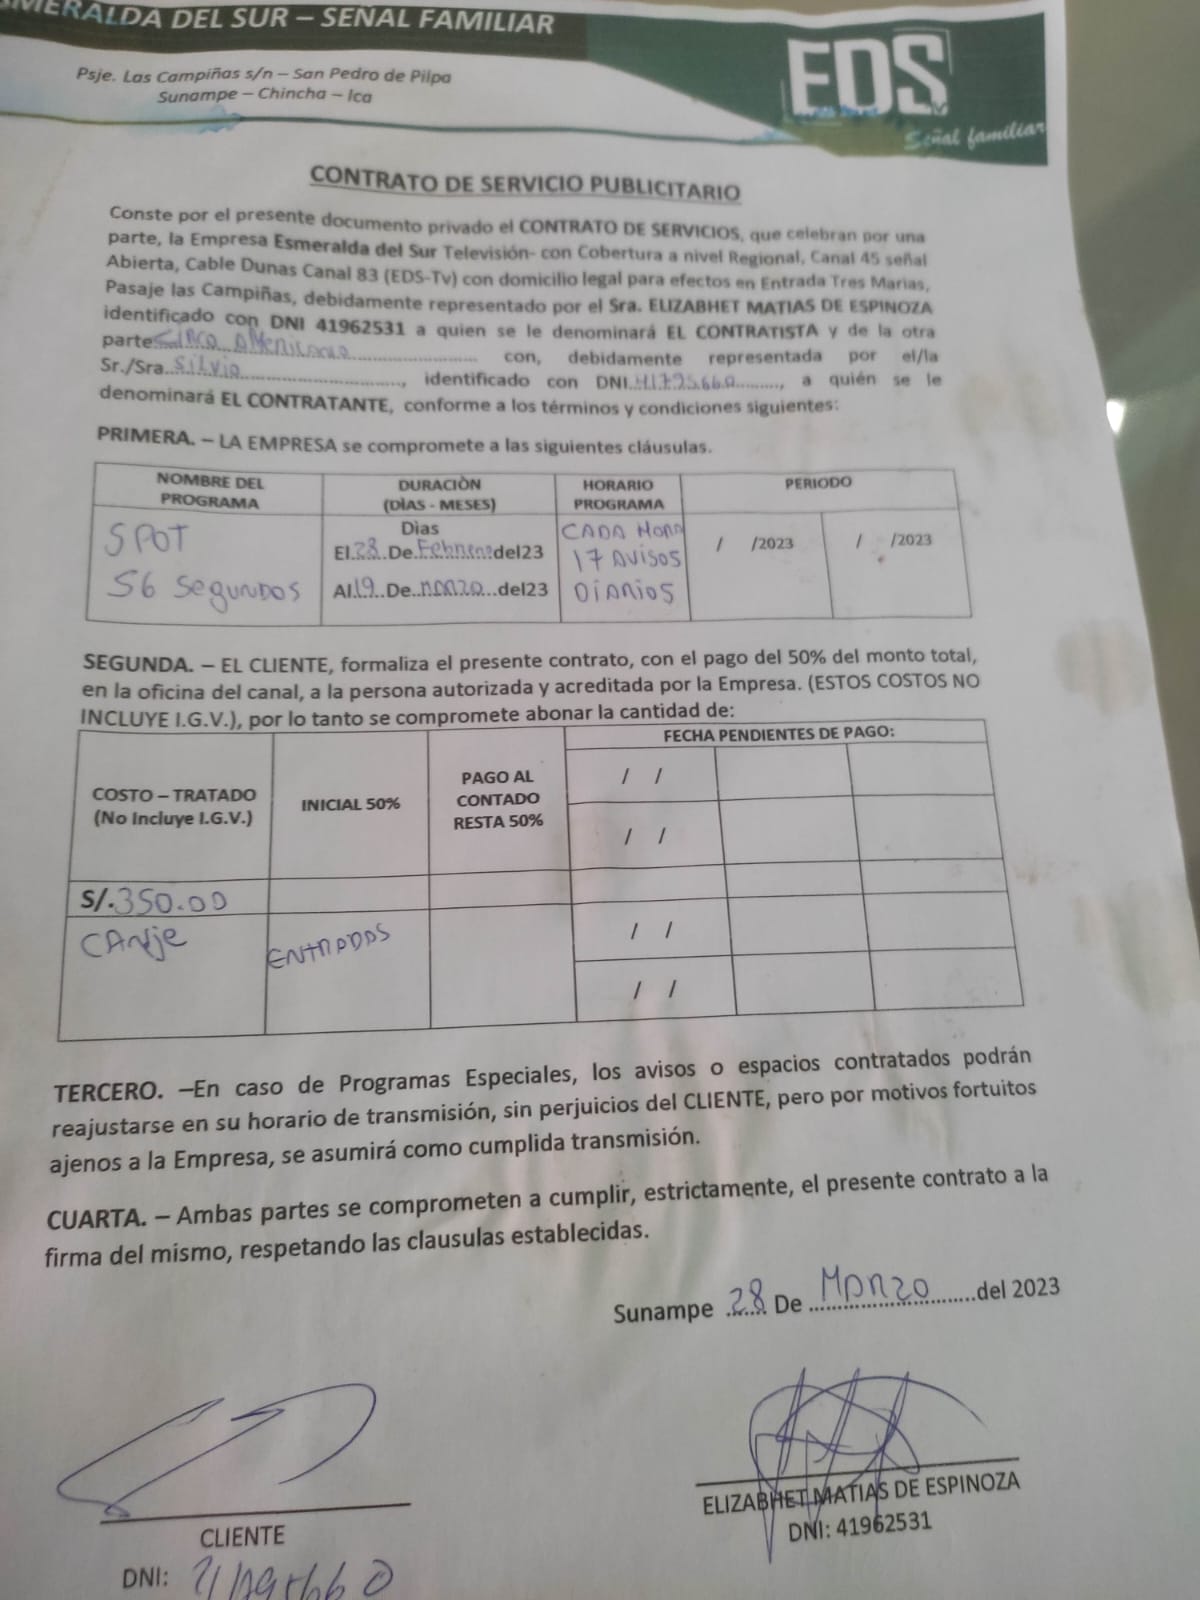 SMERALDA DEL SUR – SEÑAL FAMILIAR
Psje. Las Campiñas s/n – San Pedro de Pilpa
Sunampe – Chincha – Ica
EDS
Señal familiar
CONTRATO DE SERVICIO PUBLICITARIO
Conste por el presente documento privado el CONTRATO DE SERVICIOS, que celebran por una
parte, la Empresa Esmeralda del Sur Televisión- con Cobertura a nivel Regional, Canal 45 señal
Abierta, Cable Dunas Canal 83 (EDS-Tv) con domicilio legal para efectos en Entrada Tres Marias,
Pasaje las Campiñas, debidamente representado por el Sra. ELIZABHET MATIAS DE ESPINOZA
identificado con DNI 41962531 a quien se le denominará EL CONTRATISTA y de la otra
parte Circo Americano con, debidamente representada por el/la
Sr./Sra. Silvio, identificado con DNI 41795660, a quién se le
denominará EL CONTRATANTE, conforme a los términos y condiciones siguientes:
PRIMERA. – LA EMPRESA se compromete a las siguientes cláusulas.
NOMBRE DEL PROGRAMA
DURACIÒN (DÌAS - MESES)
HORARIO PROGRAMA
PERIODO
SPOT
56 Segundos
Dìas
El 28 De Febrero del23
Al 19 De marzo del23
CADA HORA
17 AVISOS
DIARIOS
/ /2023
/ /2023
SEGUNDA. – EL CLIENTE, formaliza el presente contrato, con el pago del 50% del monto total,
en la oficina del canal, a la persona autorizada y acreditada por la Empresa. (ESTOS COSTOS NO
INCLUYE I.G.V.), por lo tanto se compromete abonar la cantidad de:
COSTO – TRATADO (No Incluye I.G.V.)
INICIAL 50%
PAGO AL CONTADO RESTA 50%
FECHA PENDIENTES DE PAGO:
/ /
/ /
S/. 350.00
CANJE
ENTRADAS
/ /
/ /
TERCERO. –En caso de Programas Especiales, los avisos o espacios contratados podrán
reajustarse en su horario de transmisión, sin perjuicios del CLIENTE, pero por motivos fortuitos
ajenos a la Empresa, se asumirá como cumplida transmisión.
CUARTA. – Ambas partes se comprometen a cumplir, estrictamente, el presente contrato a la
firma del mismo, respetando las clausulas establecidas.
Sunampe 28 De Marzo del 2023
CLIENTE
DNI:
ELIZABHET MATIAS DE ESPINOZA
DNI: 41962531